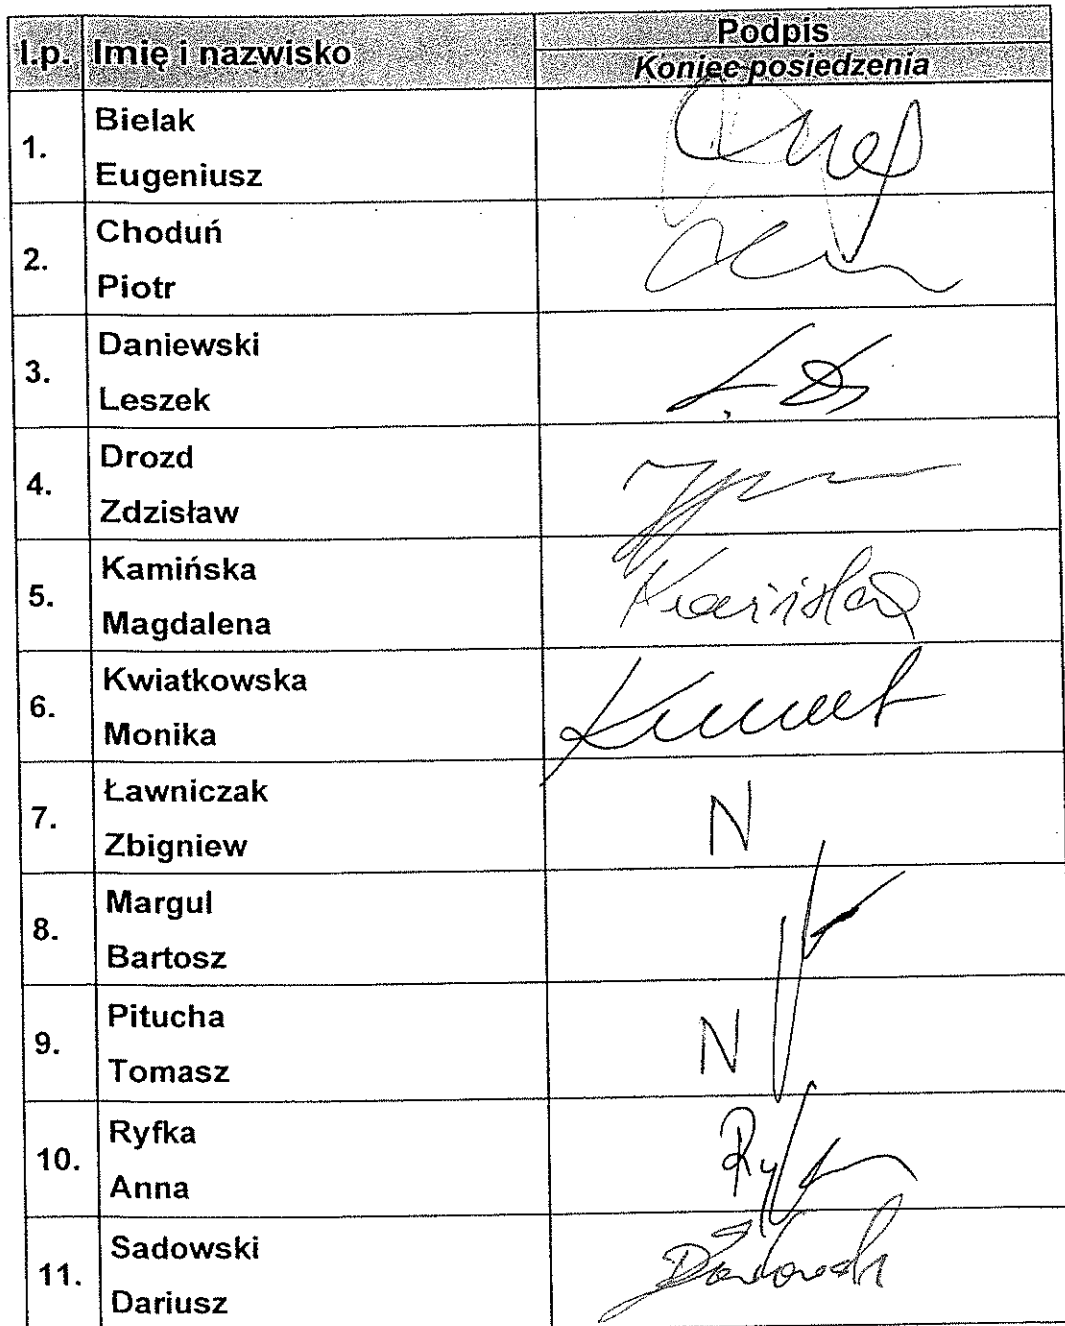 l.p. Imię i nazwisko Podpis
Koniec posiedzenia
1. Bielak
Eugeniusz
2. Choduń
Piotr
3. Daniewski
Leszek
4. Drozd
Zdzisław
5. Kamińska
Magdalena
6. Kwiatkowska
Monika
7. Ławniczak
Zbigniew
N
8. Margul
Bartosz
9. Pitucha
Tomasz
N
10. Ryfka
Anna
11. Sadowski
Dariusz